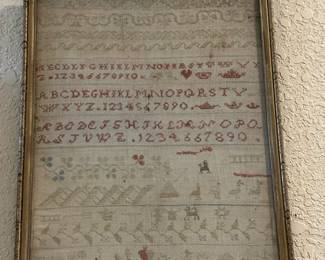 ABCDEFGHIKLMNOPQRSTVWXY
Z.12345678910.
ABCDEGHIKLMNOPQRSTV
WXYZ.1234567890.
ABCDEFGHIKLMNOPQ
RSTVWZ.1234567890